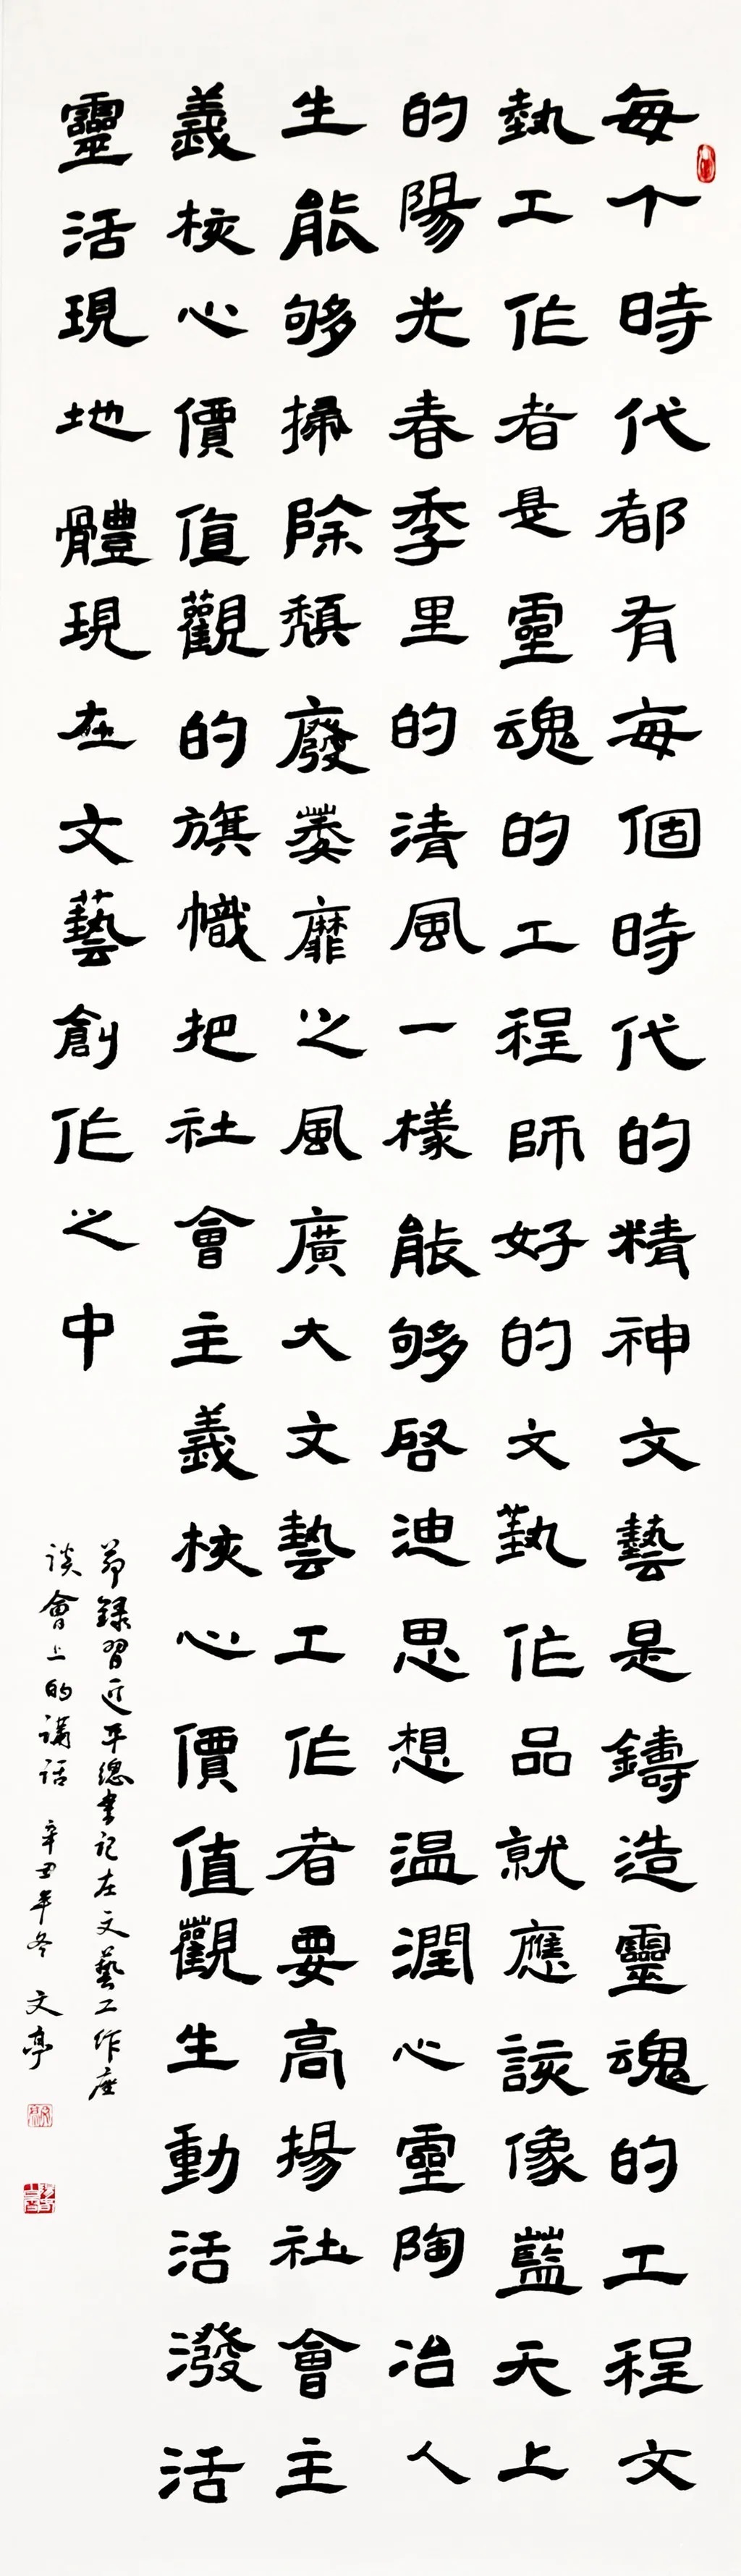 每个時代都有每個時代的精神文藝是鑄造靈魂的工程文
藝工作者是靈魂的工程師好的文藝作品就應該像藍天上
的陽光春季里的清風一樣能够啓迪思想温潤心靈陶冶人
生能够掃除頽廢萎靡之風廣大文藝工作者要高揚社會主
義核心價值觀的旗幟把社會主義核心價值觀生動活潑活
靈活現地體現在文藝創作之中
節録習近平總書記在文藝工作座
談會上的講話 辛丑年冬 文亭